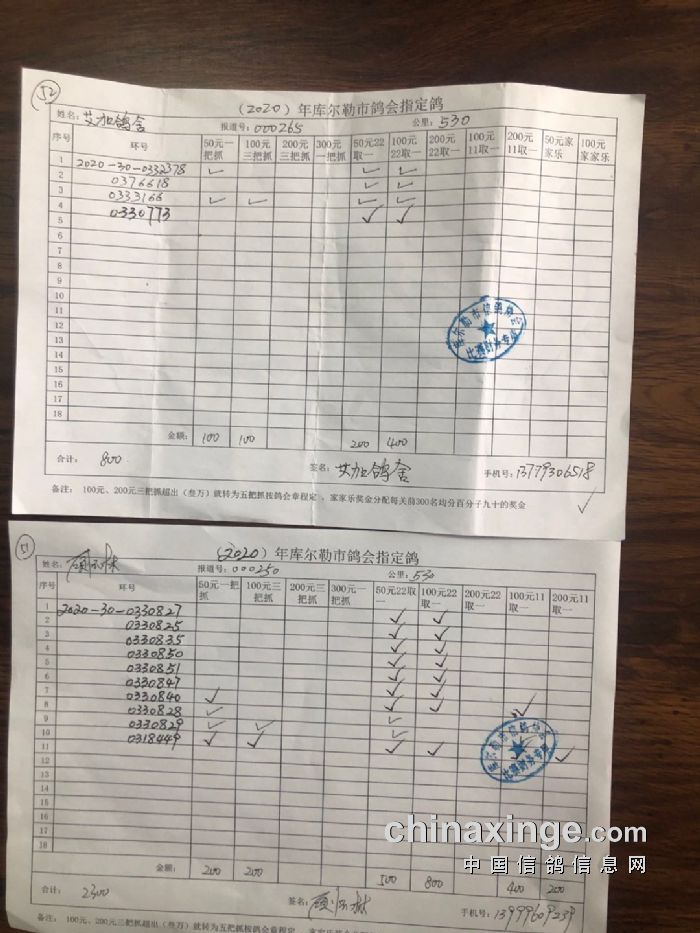 52
(2020)年库尔勒市鸽会指定鸽
姓名: 艾旭鸽舍 报道号: 000265 公里: 530
序号 环号 50元一把抓 100元三把抓 200元三把抓 300元一把抓 50元22取一 100元22取一 200元22取一 100元11取一 200元11取一 50元家家乐 100元家家乐
1 2020-30-0332378 ✓ ✓ ✓
2 0376618 ✓ ✓
3 0333166 ✓ ✓ ✓ ✓
4 0330773 ✓ ✓
5
6
7
8
9
10
11
12
13
14
15
16
17
18
库尔勒市信鸽协会
比赛财务专用
金额: 100 100 200 400
合计: 800 签名: 鸽舍 手机号: 13779306518
备注: 100元、200元三把抓超出(叁万)就转为五把抓按鸽会章程定、家家乐奖金分配每关前300名均分百分子九十的奖金
51
(2020)年库尔勒市鸽会指定鸽
姓名: 报道号: 000250 公里: 530
序号 环号 50元一把抓 100元三把抓 200元三把抓 300元一把抓 50元22取一 100元22取一 200元22取一 100元11取一 200元11取一
1 2020-30-0330827 ✓ ✓
2 0330825 ✓ ✓
3 0330835 ✓ ✓
4 0330850 ✓ ✓
5 0330851 ✓ ✓
6 0330847 ✓ ✓
7 0330840 ✓ ✓ ✓ ✓
8 0330828 ✓ ✓
9 0330829 ✓ ✓ ✓
10 0318449 ✓ ✓ ✓ ✓ ✓ ✓
11
12
13
14
15
16
17
18
库尔勒市信鸽协会
比赛财务专用
金额: 200 200 500 800 400 200
合计: 2300 签名: 手机号: 13999609239
备注: 100元、200元三把抓超出(叁万)就转为五把抓按鸽会章程定
chinaxinge.com
中国信鸽信息网